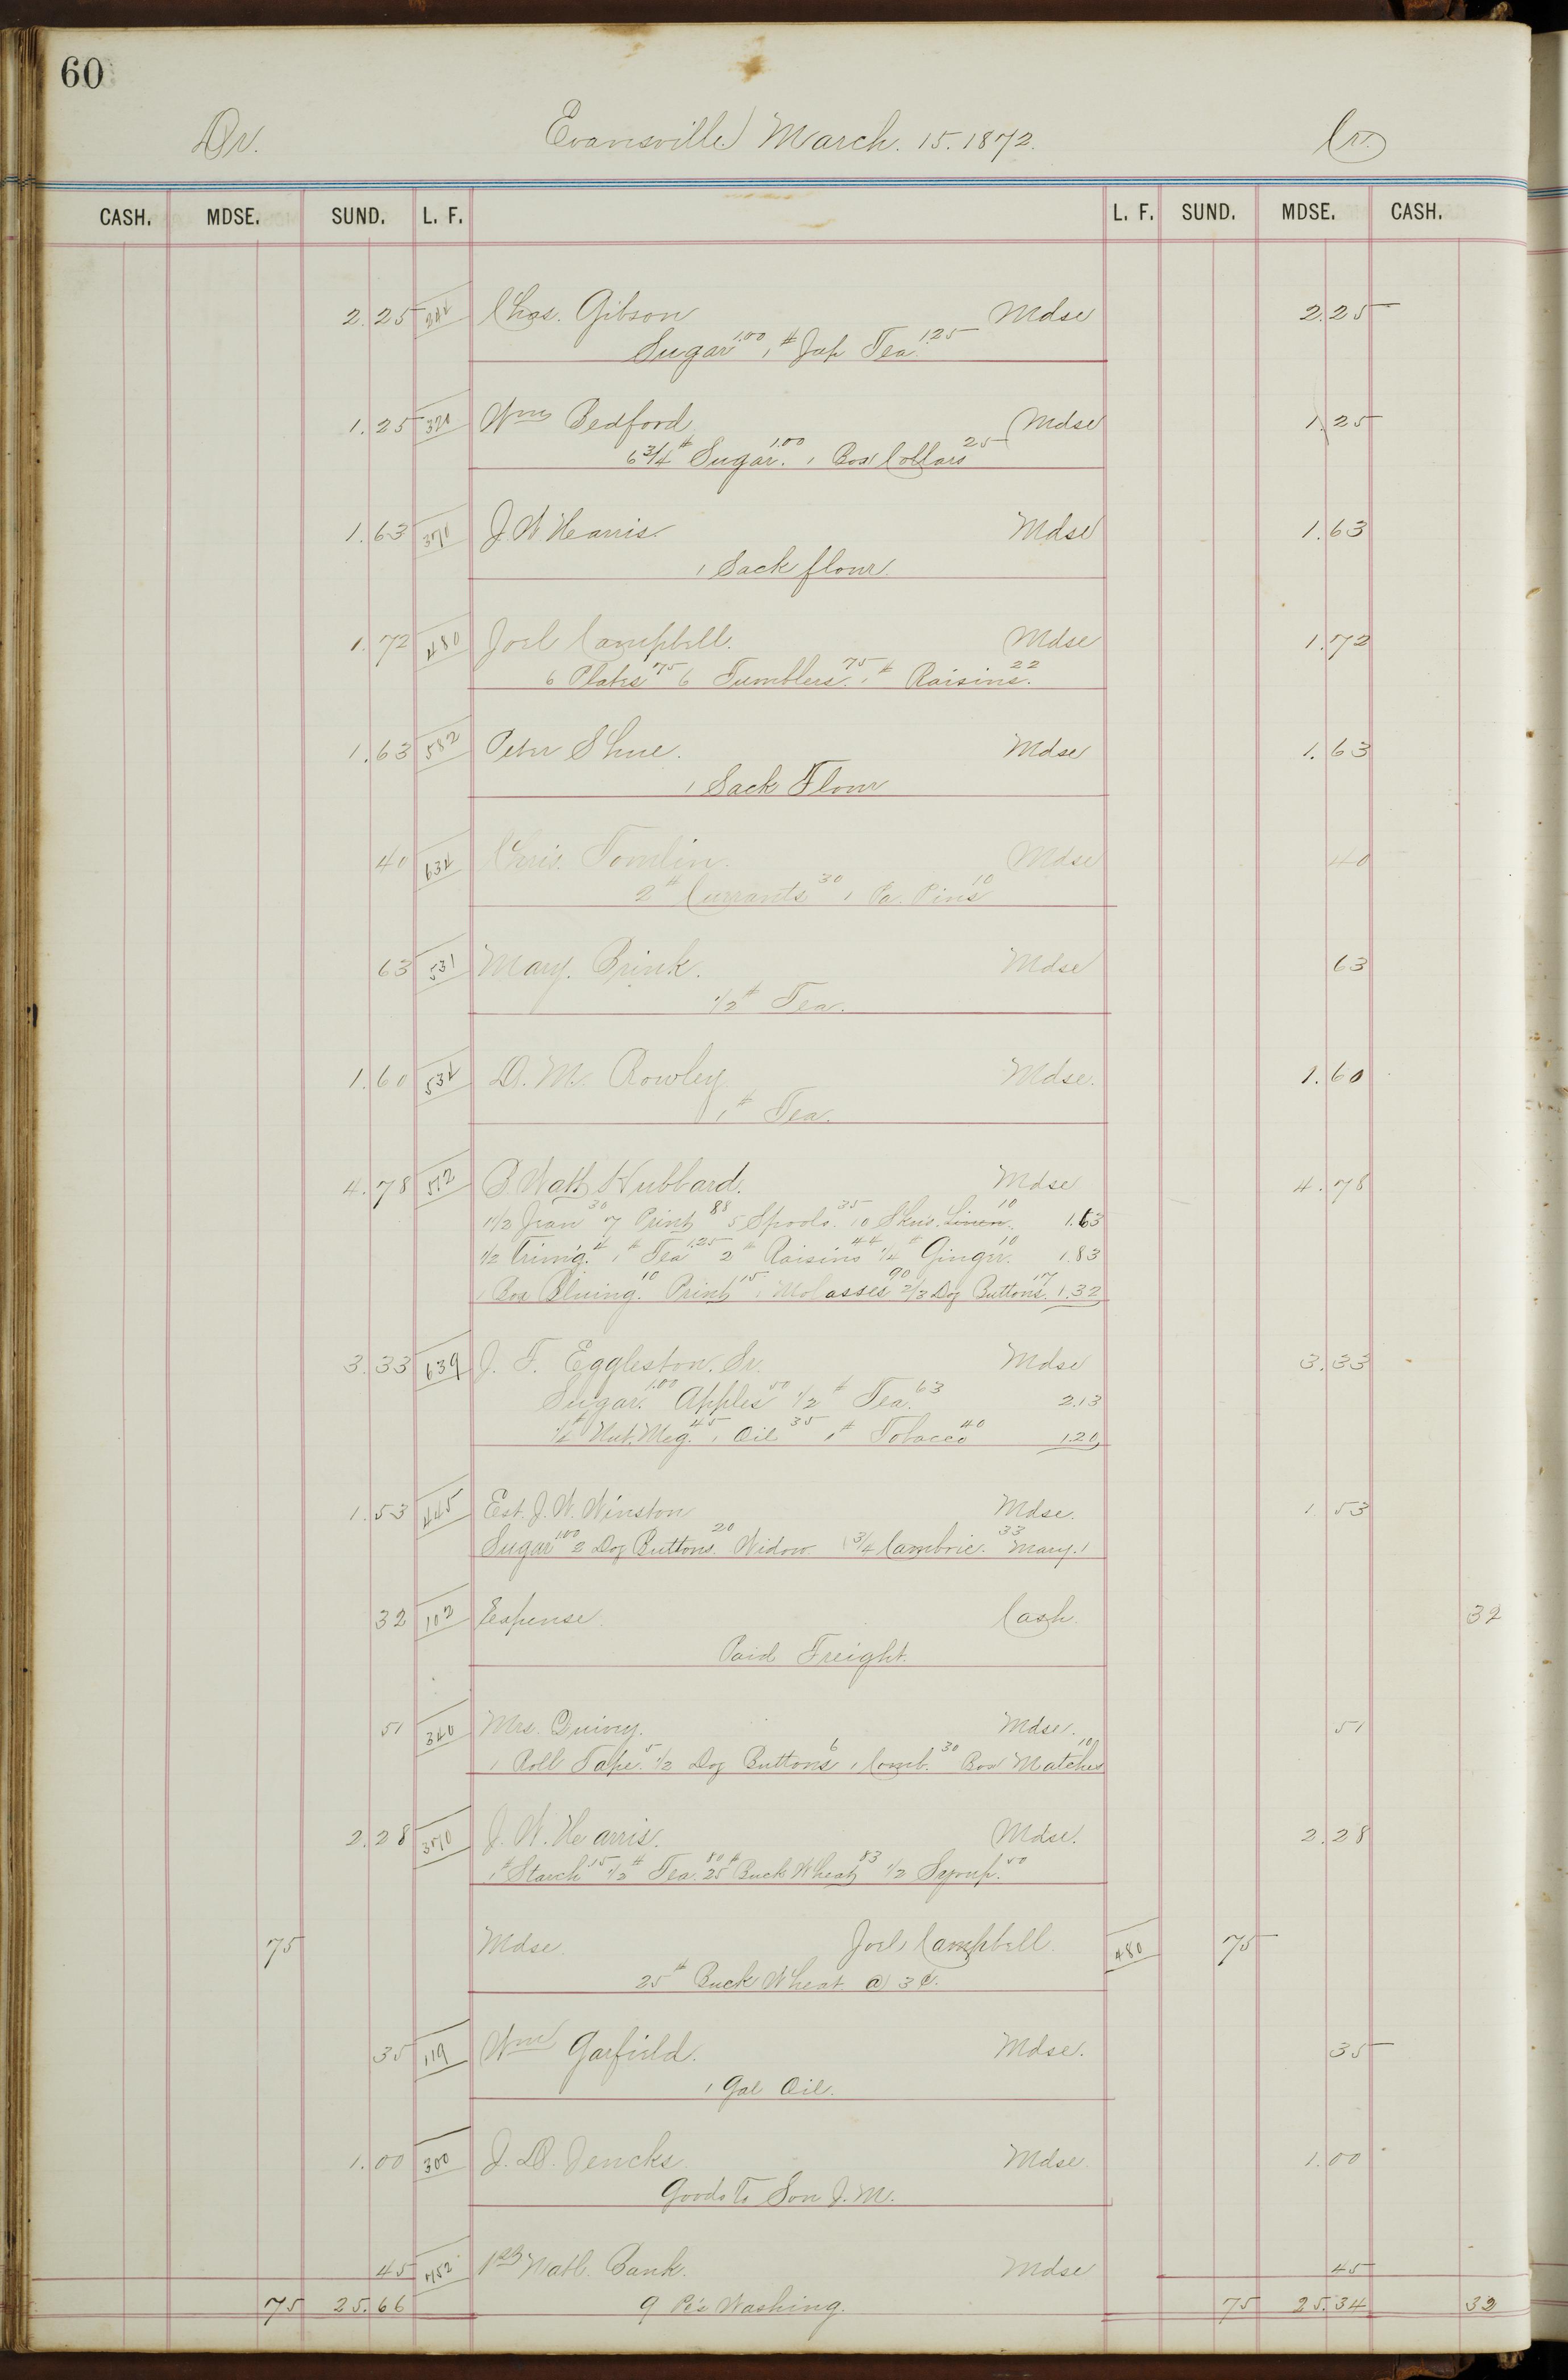 60
Dr. Evansville March. 15. 1872. Cr.
CASH. MDSE. SUND. L. F. L. F. SUND. MDSE. CASH.
2.25 244 Chas. Gibson Mdse 2.25
Sugar 1.00 1 # Jap Tea. 1.25
1.25 Wm Bedford Mdse 1.25
6 3/4 # Sugar. 1.00 1 Box Collars 25
1.63 370 J. W Hearris. Mdse 1.63
1 Sack flour.
1.72 480 Joel Campbell. Mdse 1.72
6 Plates 75 6 Tumblers. 75 1 # Raisins. 22
1.63 582 Peter Shue. Mdse 1.63
1 Sack Flour
40 634 Chris. Tomlin. Mdse 40
2 # Currants 30 1 Pa. Pins 10
63 531 Mary. Brink. Mdse 63
1/2 # Tea.
1.60 534 D. M. Rowley Mdse. 1.60
1 # Tea.
4.78 512 B. Watt Hubbard. Mdse 4.78
1 1/2 Jean 30 7 Print 88 5 Spools. 35 10 Skns. Linen. 10 1.63
1/2 Trim'g. 4 1 # Tea 1.25 2 # Raisins 44 1/4 # Ginger. 10 1.83
1 Box Bluing. 10 Print 15 1 Molasses 90 2/3 Doz Buttons. 17 1.32
3.33 639 J. F. Eggleston. Sr. Mdse 3.33
Sugar. 1.00 Apples 50 1/2 # Tea. 63 2.13
1/4 # Nut. Meg. 45 1 Oil 35 1 # Tobacco 40 1.20
1.53 445 Est. J. W. Winston Mdse. 1.53
Sugar 1.00 2 Doz Buttons. 20 Widow. (3/4 Cambric. 33 Mary.)
32 102 Expense. Cash. 32
Paid Freight.
51 340 Mrs. Quivey. Mdse. 51
1 Roll Tape. 5 1/2 Doz Buttons 6 1 Comb. 30 Box Matches 10
2.28 370 J. W. Hearris. Mdse. 2.28
1 # Starch 15 1/2 # Tea. 80 25 # Buck Wheat 83 1/2 Syrup. 50
75 Mdse. Joel Campbell. 480 75
25 # Buck Wheat @ 3 ¢.
35 119 Wm Garfield. Mdse. 35
1 Gal Oil.
1.00 300 J. D. Jencks. Mdse. 1.00
Goods to Son J. M.
45 452 1st Natl. Bank. Mdse 45
75 25.66 9 Pc's Washing. 75 25.34 32